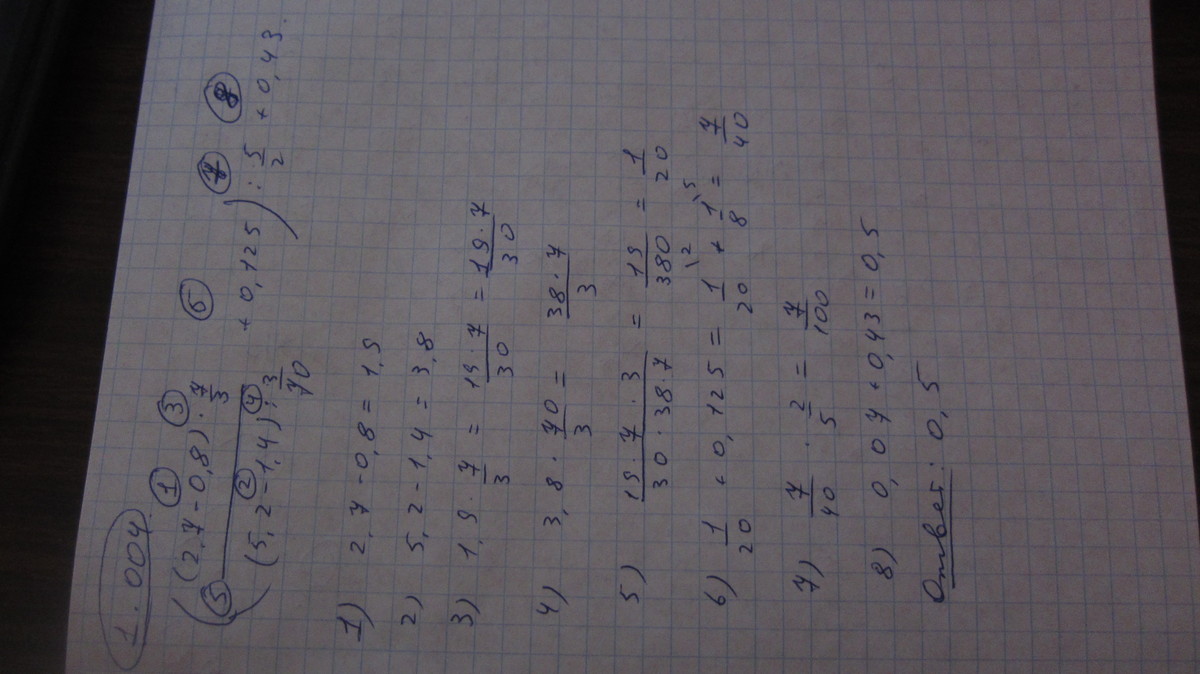 1.004.
① ③ ⑥ ⑦ ⑧
( (2,7-0,8)·7/3 + 0,125 ) : 5/2 + 0,43.
⑤ ② ④
(5,2-1,4):3/70
1) 2,7-0,8=1,9
2) 5,2-1,4=3,8
3) 1,9·7/3 = 19·7/30 = 19·7/30
4) 3,8·70/3 = 38·7/3
5) 19·7·3/30·38·7 = 19/380 = 1/20
6) 1/20 + 0,125 = 1\2/20 + 1\5/8 = 7/40
7) 7/40 · 2/5 = 7/100
8) 0,07+0,43=0,5
Ответ: 0,5